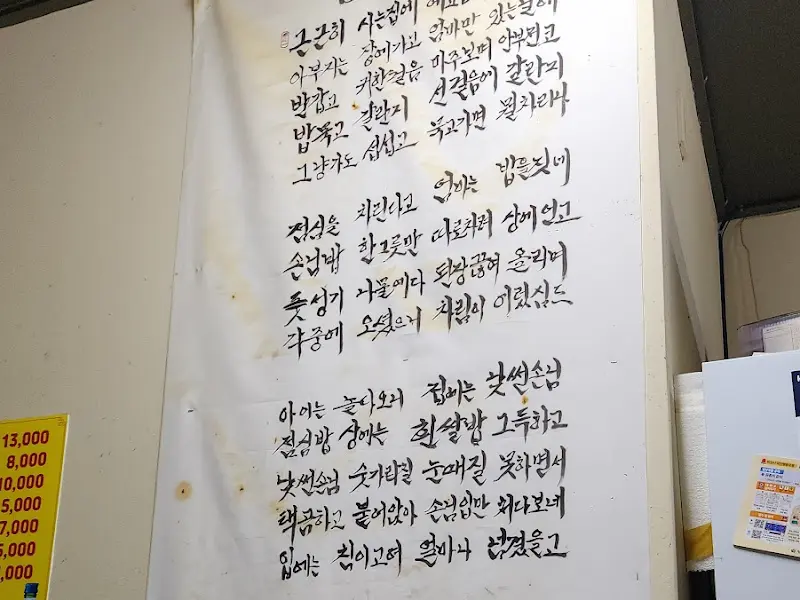 근근히 사는집에
아부지는 장에가고 엄마만 있는날에
발갑고 귀한걸음 마주보며 안부전코
밥묵고 갈란지 선걸음에 갈란지
그냥가도 섭섭고 묵고가면 뭘차리나
점심을 차린다고 엄마는 밥을짓네
손님밥 한그릇만 따로차려 상에얹고
풋성기 나물에다 된장끓여 올리며
각중에 오셨으니 차림이 이렇심드
아이는 놀다오니 집에는 낯썬손님
점심밥 상에는 흰쌀밥 그득하고
낯썬손님 숫카락질 눈때질 못하면서
때꼼하고 붙어앉아 손님입만 쳐다보네
입에는 침이고여 얼마나 넘겼을고
13,000
8,000
10,000
5,000
7,000
5,000
,000